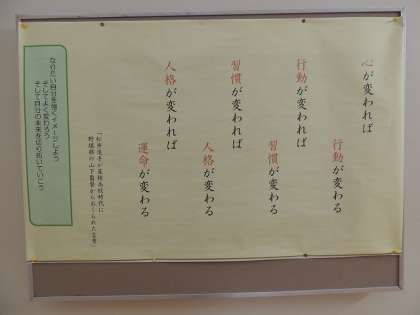 心が変われば
行動が変わる
行動が変われば
習慣が変わる
習慣が変われば
人格が変わる
人格が変われば
運命が変わる
「松井選手が星稜高校時代に
野球部の山下監督からおくられた言葉」
なりたい自分を強くイメージしよう
そしてよく変わろう
そして自分の未来を切り拓いていこう